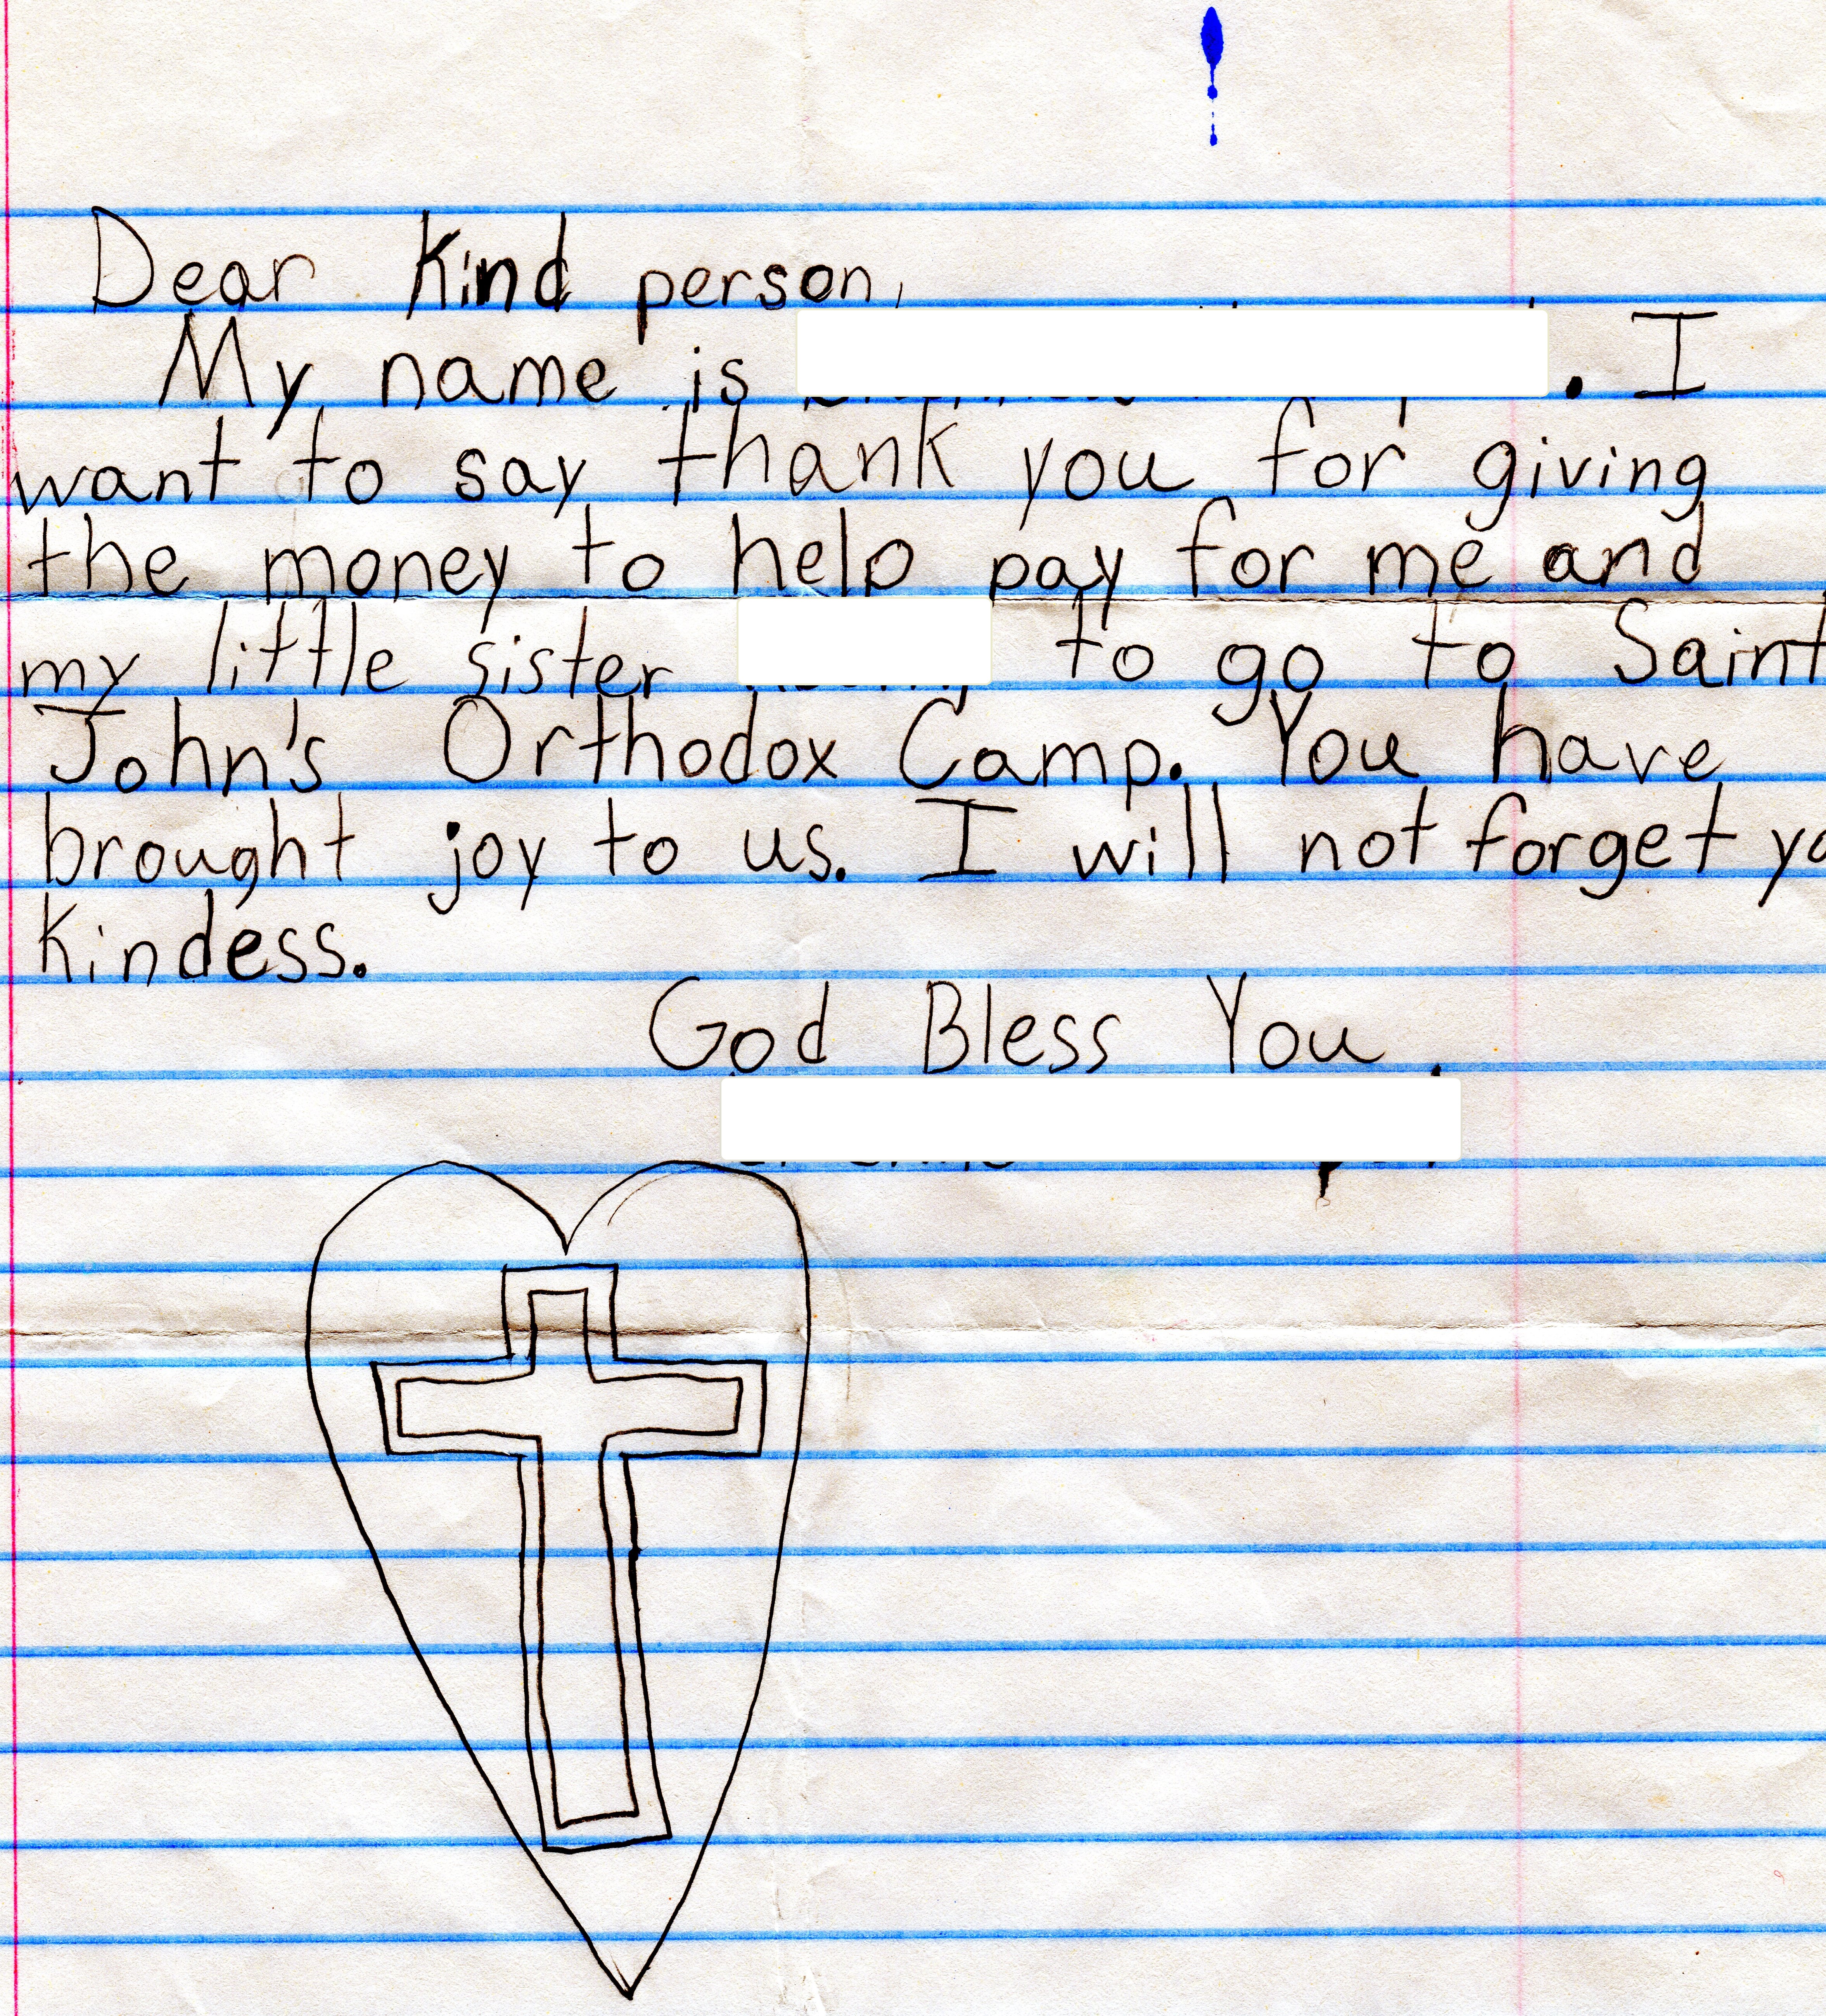 Dear Kind person,
My name is . I
want to say thank you for giving
the money to help pay for me and
my little sister to go to Saint
John's Orthodox Camp. You have
brought joy to us. I will not forget
Kindess.
God Bless You,